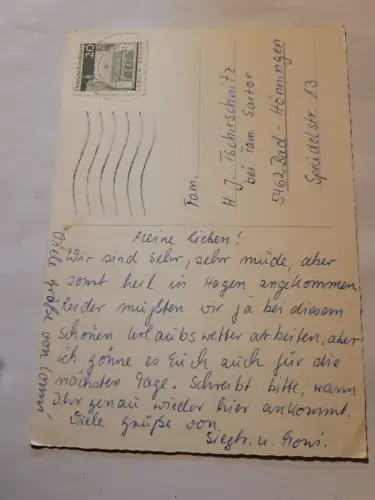 Meine Lieben!
Wir sind sehr, sehr müde, aber
sonst heil in Hagen angekommen.
Leider mußten wir ja bei diesem
schönen Urlaubswetter arbeiten, aber
ich gönne es Euch auch für die
nächsten Tage. Schreibt bitte, wann
Ihr genau wieder hier ankommt.
Viele Grüße von
Siegfr. u.
Viele Grüße von
Fam.
H. J. Tschirschnitz
bei Fam. Sartor
5462 Bad-Hönningen
Sprudelstr. 13
20